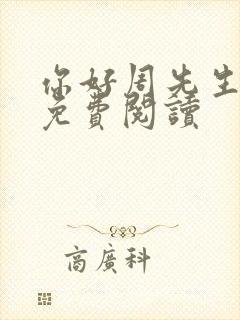 你好周先生
免費閱讀
商廣科